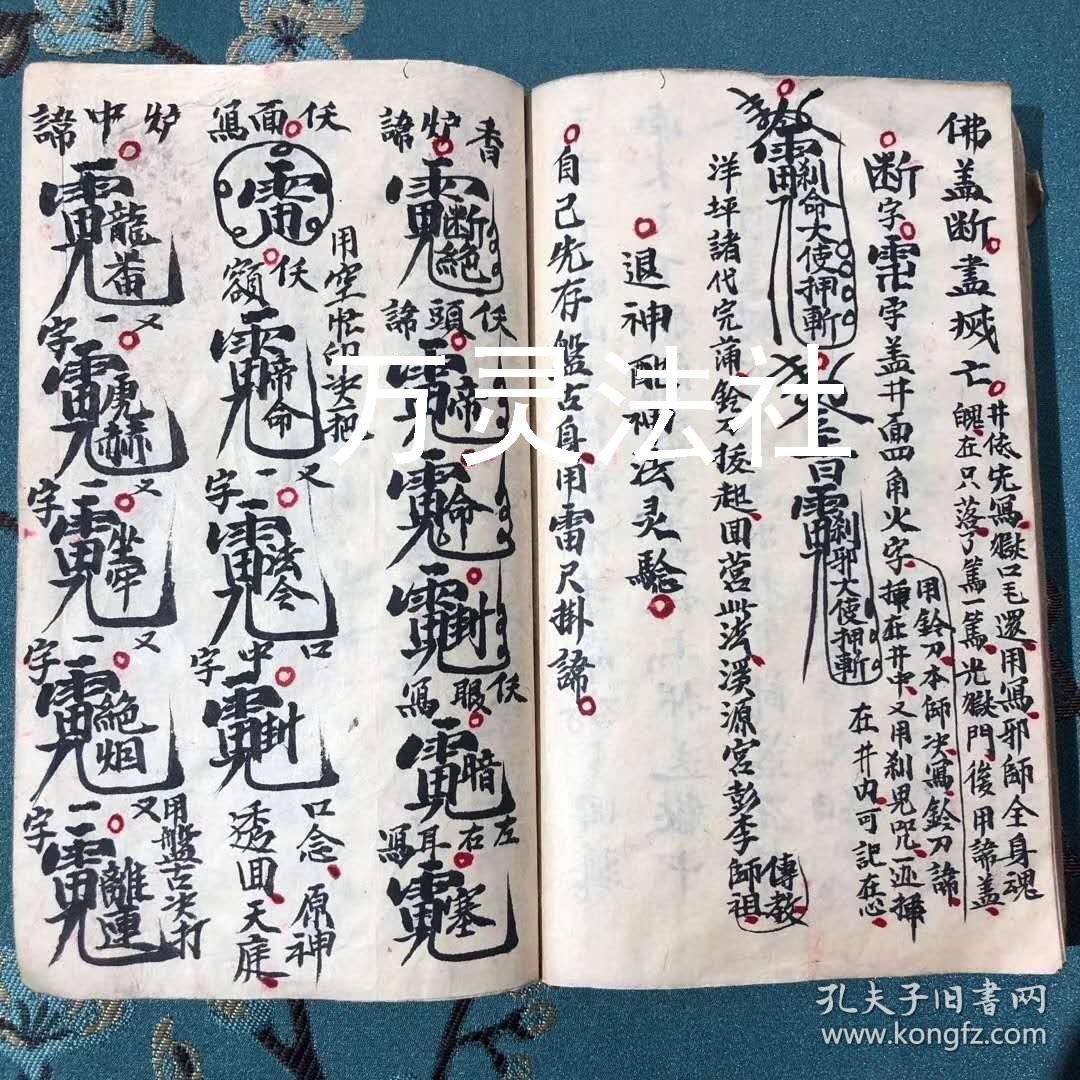 佛盖断盡滅亡
井依先寫獄口毛還用寫邪師全身魂
魄在只落了篱一篱光獄門後用諦盖
断字
字盖井面四角火字
用鈴刀本師决寫鈴刀諦
揷在井中又用刹鬼咒一
在井内可記在心
刹命大使押斬
刹邪大使押斬
洋坪諸代完蒲鈴刀拔起回营此法溪源宮彭李師祖傳教
退神酬神法灵驗
自己先存盤古身用雷尺掛諦
香炉諦
断絕
伕頭諦
帝
命
封
伕眼寫
暗
左右耳寫
塞
伕面寫
用空
伕額
帝命
又一字
法令
口中字
封
口念原神
透回天庭
炉中諦
龍番
又一字
虎赫
又二字
坐牢
又一字
絕烟
又二字
離連
用盤古决打
万灵法社
孔夫子旧书网
www.kongfz.com